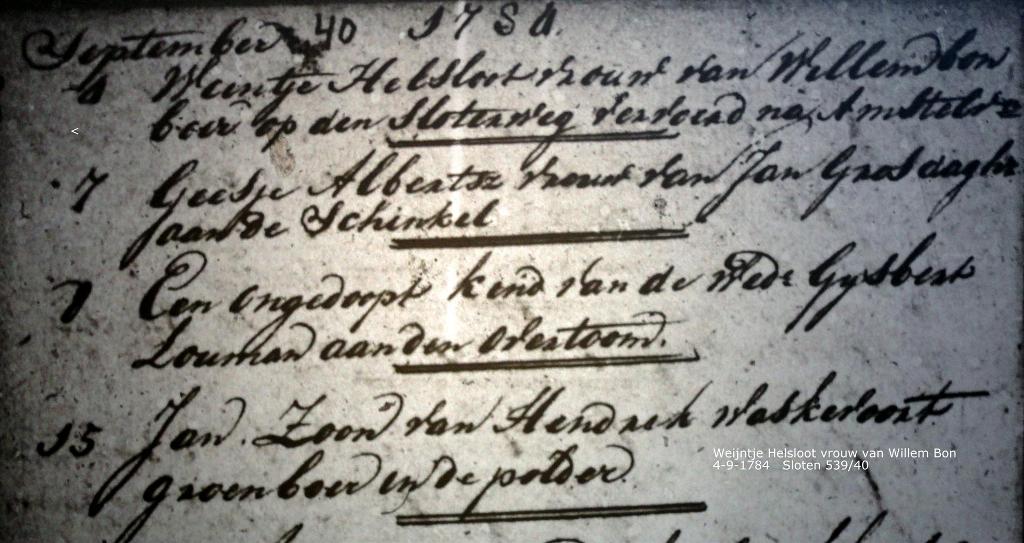 September 40 1784.
4 Weintje Helsloot vrouw van Willem bon
boer op den Sloterweg vervoerd na Amstelve
<
7 Geesje Albertse vrouw van Jan Grosdaghe
aan de Schinkel
8 Een ongedoopt kind van de Wede Gysbert
Louman aan den Overtoom.
15 Jan. Zoon van Hendrik Waskervoort
groenboer in de polder
Weijntje Helsloot vrouw van Willem Bon
4-9-1784 Sloten 539/40